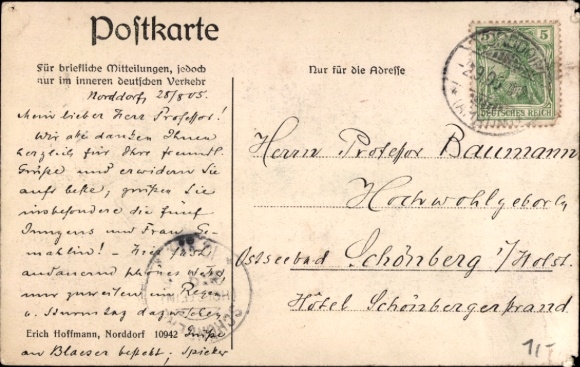 Postkarte
Für briefliche Mitteilungen, jedoch
nur im inneren deutschen Verkehr
Nur für die Adresse
Norddorf, 28/8 05.
Mein lieber Herr Professor!
Wir alle danken Ihnen
herzlich für Ihre freundl.
Grüße und erwidern Sie
aufs beste, grüßen Sie
insbesondere die fünf
Jungens und Frau Ge-
mahlin! – Hier ist
andauernd schönes Wetter,
nur zuweilen ein Regen
u. Sturmtag dazwischen
Erich Hoffmann, Norddorf 10942
an Blaeser bestellt; Spieker
Herrn Professor Baumann
Hochwohlgeboren
Ostseebad Schönberg i/Holst.
Hôtel Schönbergerstrand
5
DEUTSCHES REICH